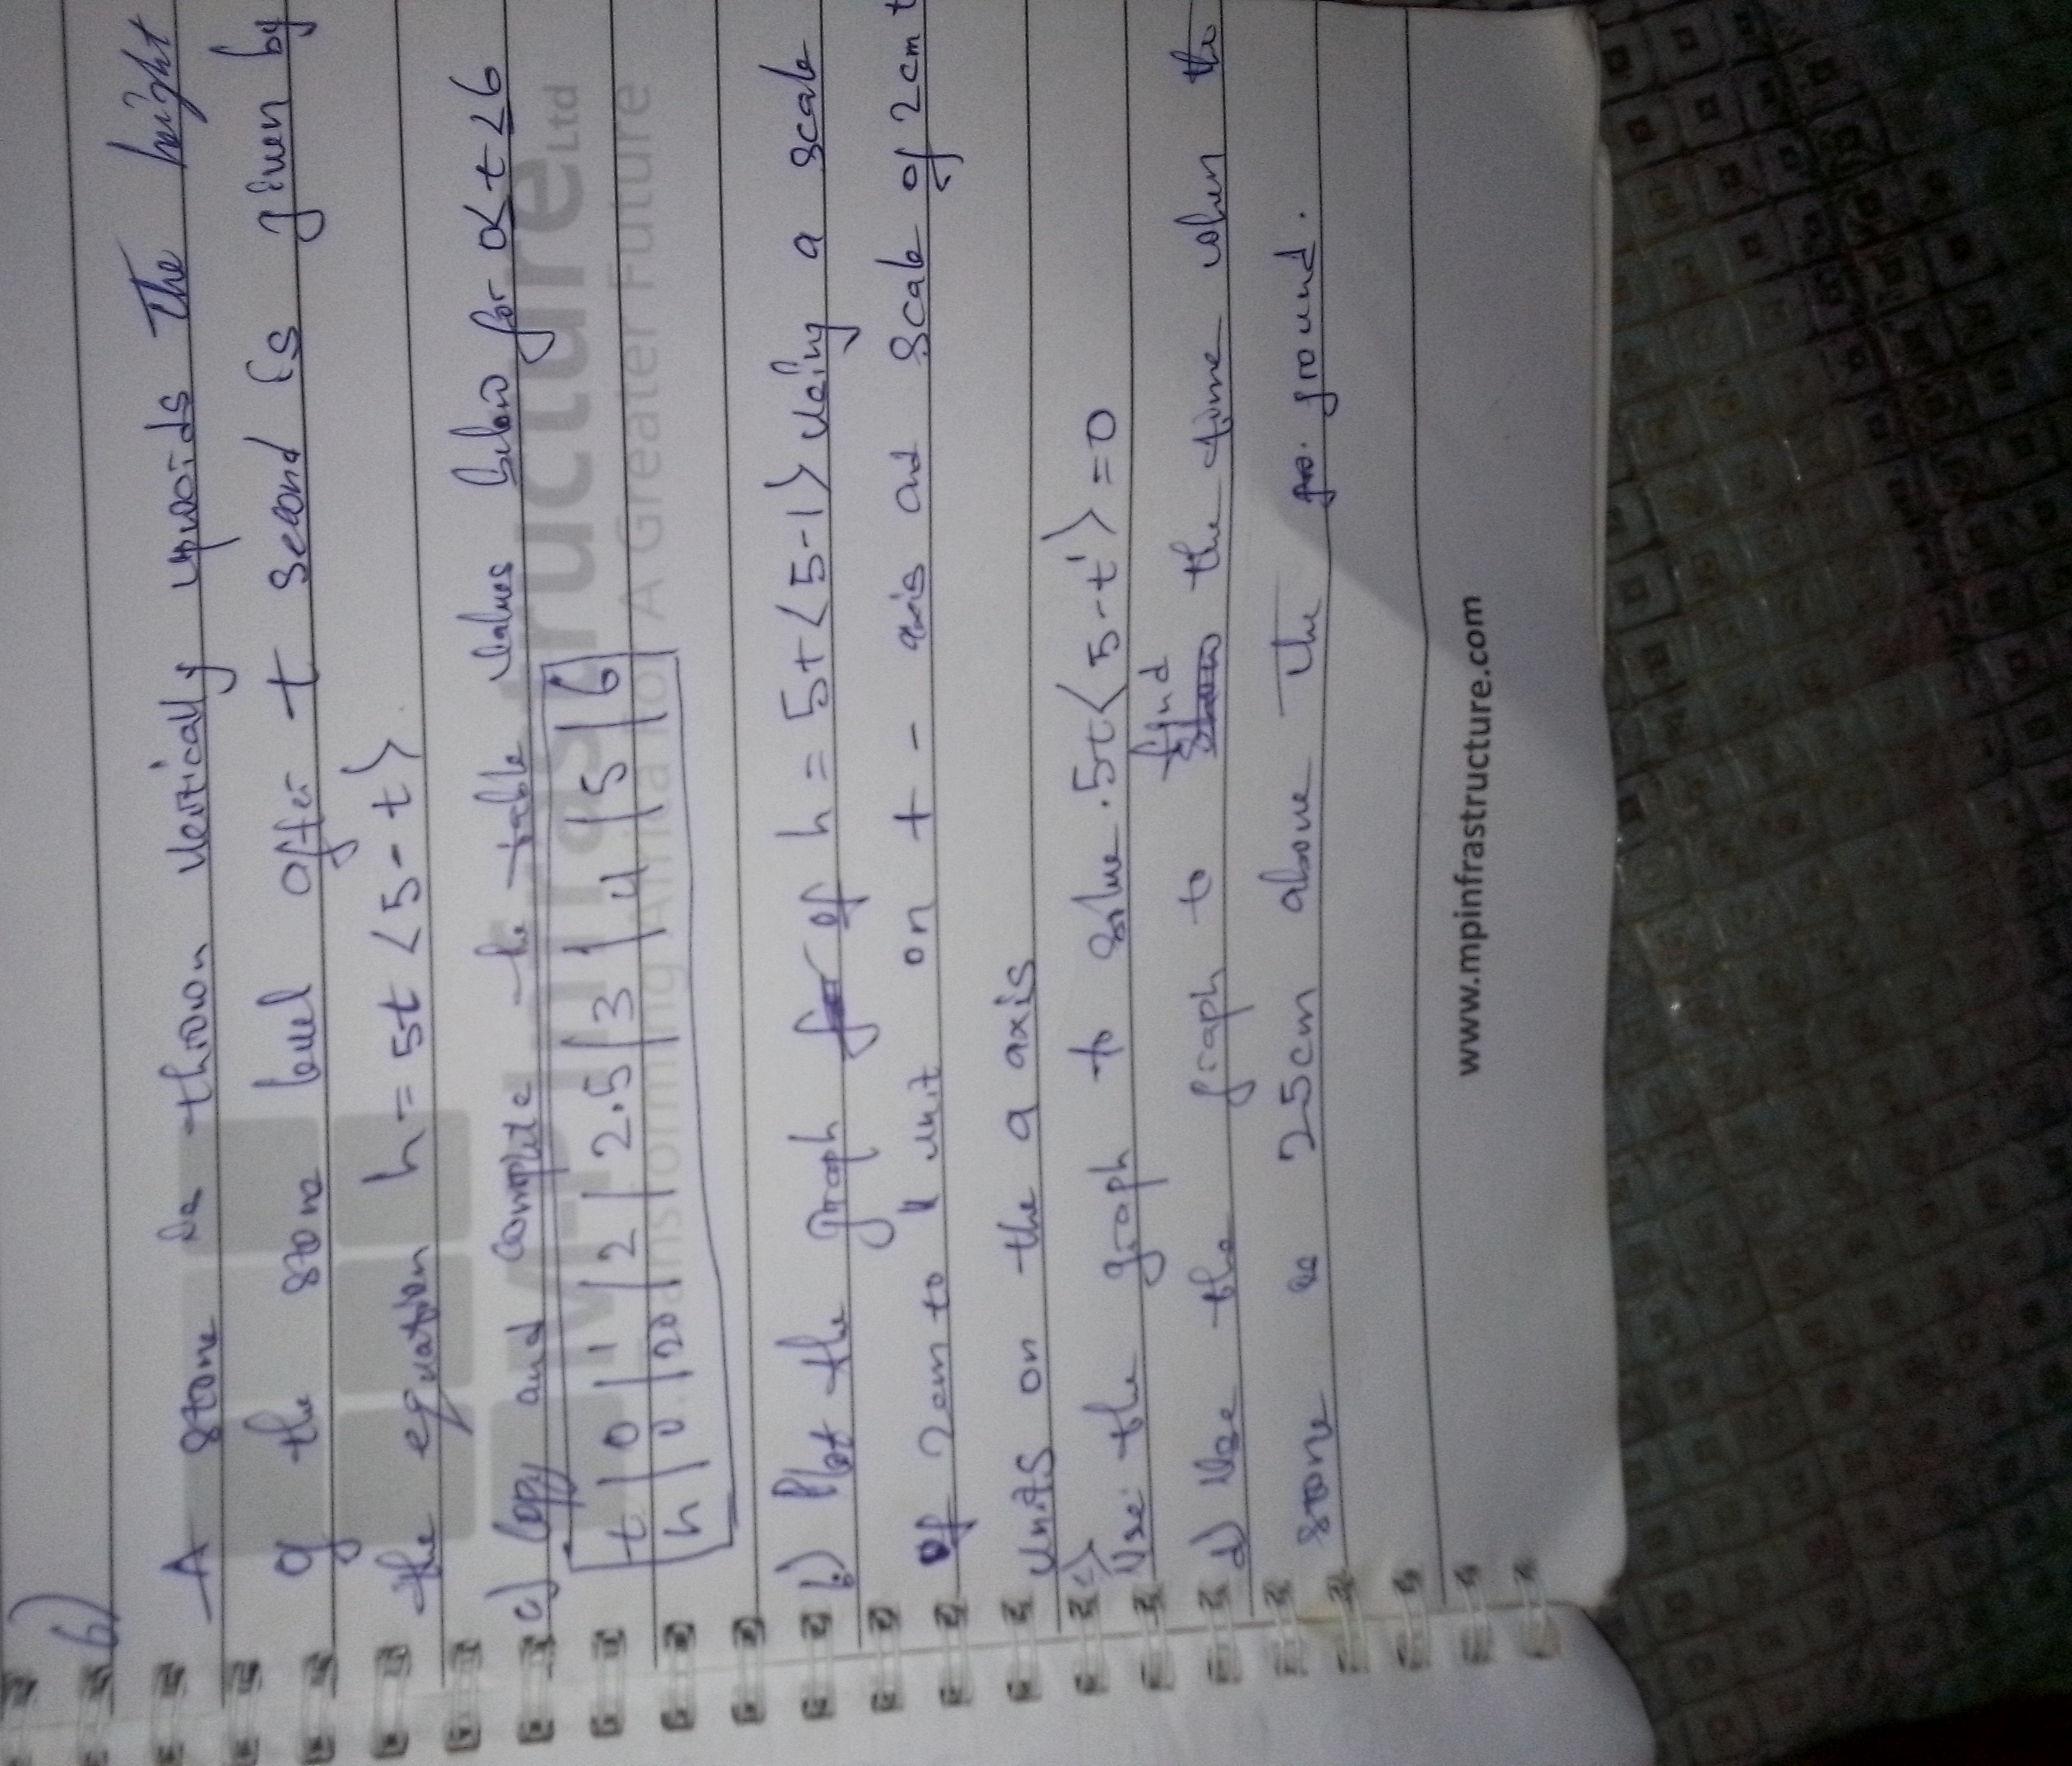 6)
A stone is thrown vertically upwards The height
of the stone level after t second is given by
the equation h = 5t < 5 - t >
a) Copy and complete the table values below for 0<t<6
t | 0 | 1 | 2 | 2.5 | 3 | 4 | 5 | 6
h | 0 | 20 |
b) Plot the graph of h = 5t < 5-1 > using a scale
of 2cm to 1 unit on t - axis and scale of 2cm t
units on the a axis
c> Use the graph to solve . 5t < 5 - t' > = 0
d) Use the graph to find the time when the
stone is 25cm above The ground.
MP Infrastructure Ltd
Transforming Africa for A Greater Future
www.mpinfrastructure.com